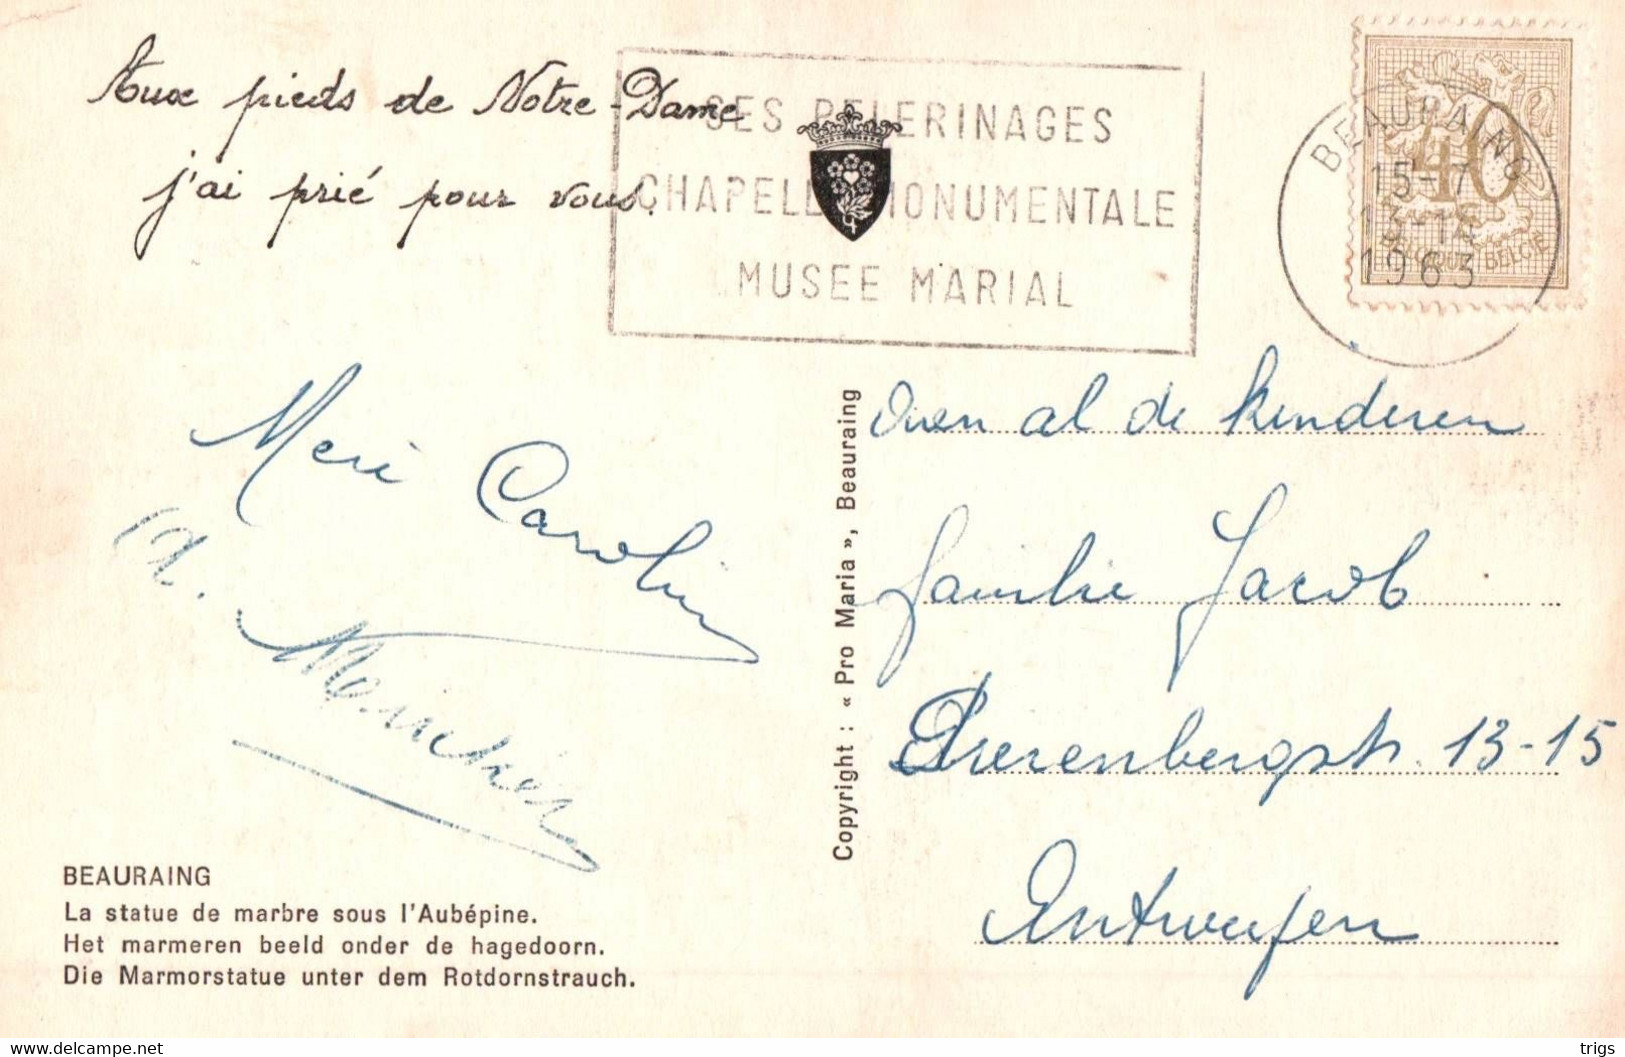 Aux pieds de Notre-Dame
j'ai prié pour vous.
SES PELERINAGES
CHAPELLE MONUMENTALE
MUSEE MARIAL
BEAURAING
15-7
13-14
1963
40
BELGIQUE BELGIË
Carolin
al de kinderen
familie Jacob
13-15
Antwerpen
Copyright : « Pro Maria », Beauraing
BEAURAING
La statue de marbre sous l'Aubépine.
Het marmeren beeld onder de hagedoorn.
Die Marmorstatue unter dem Rotdornstrauch.
delcampe.net
trigs